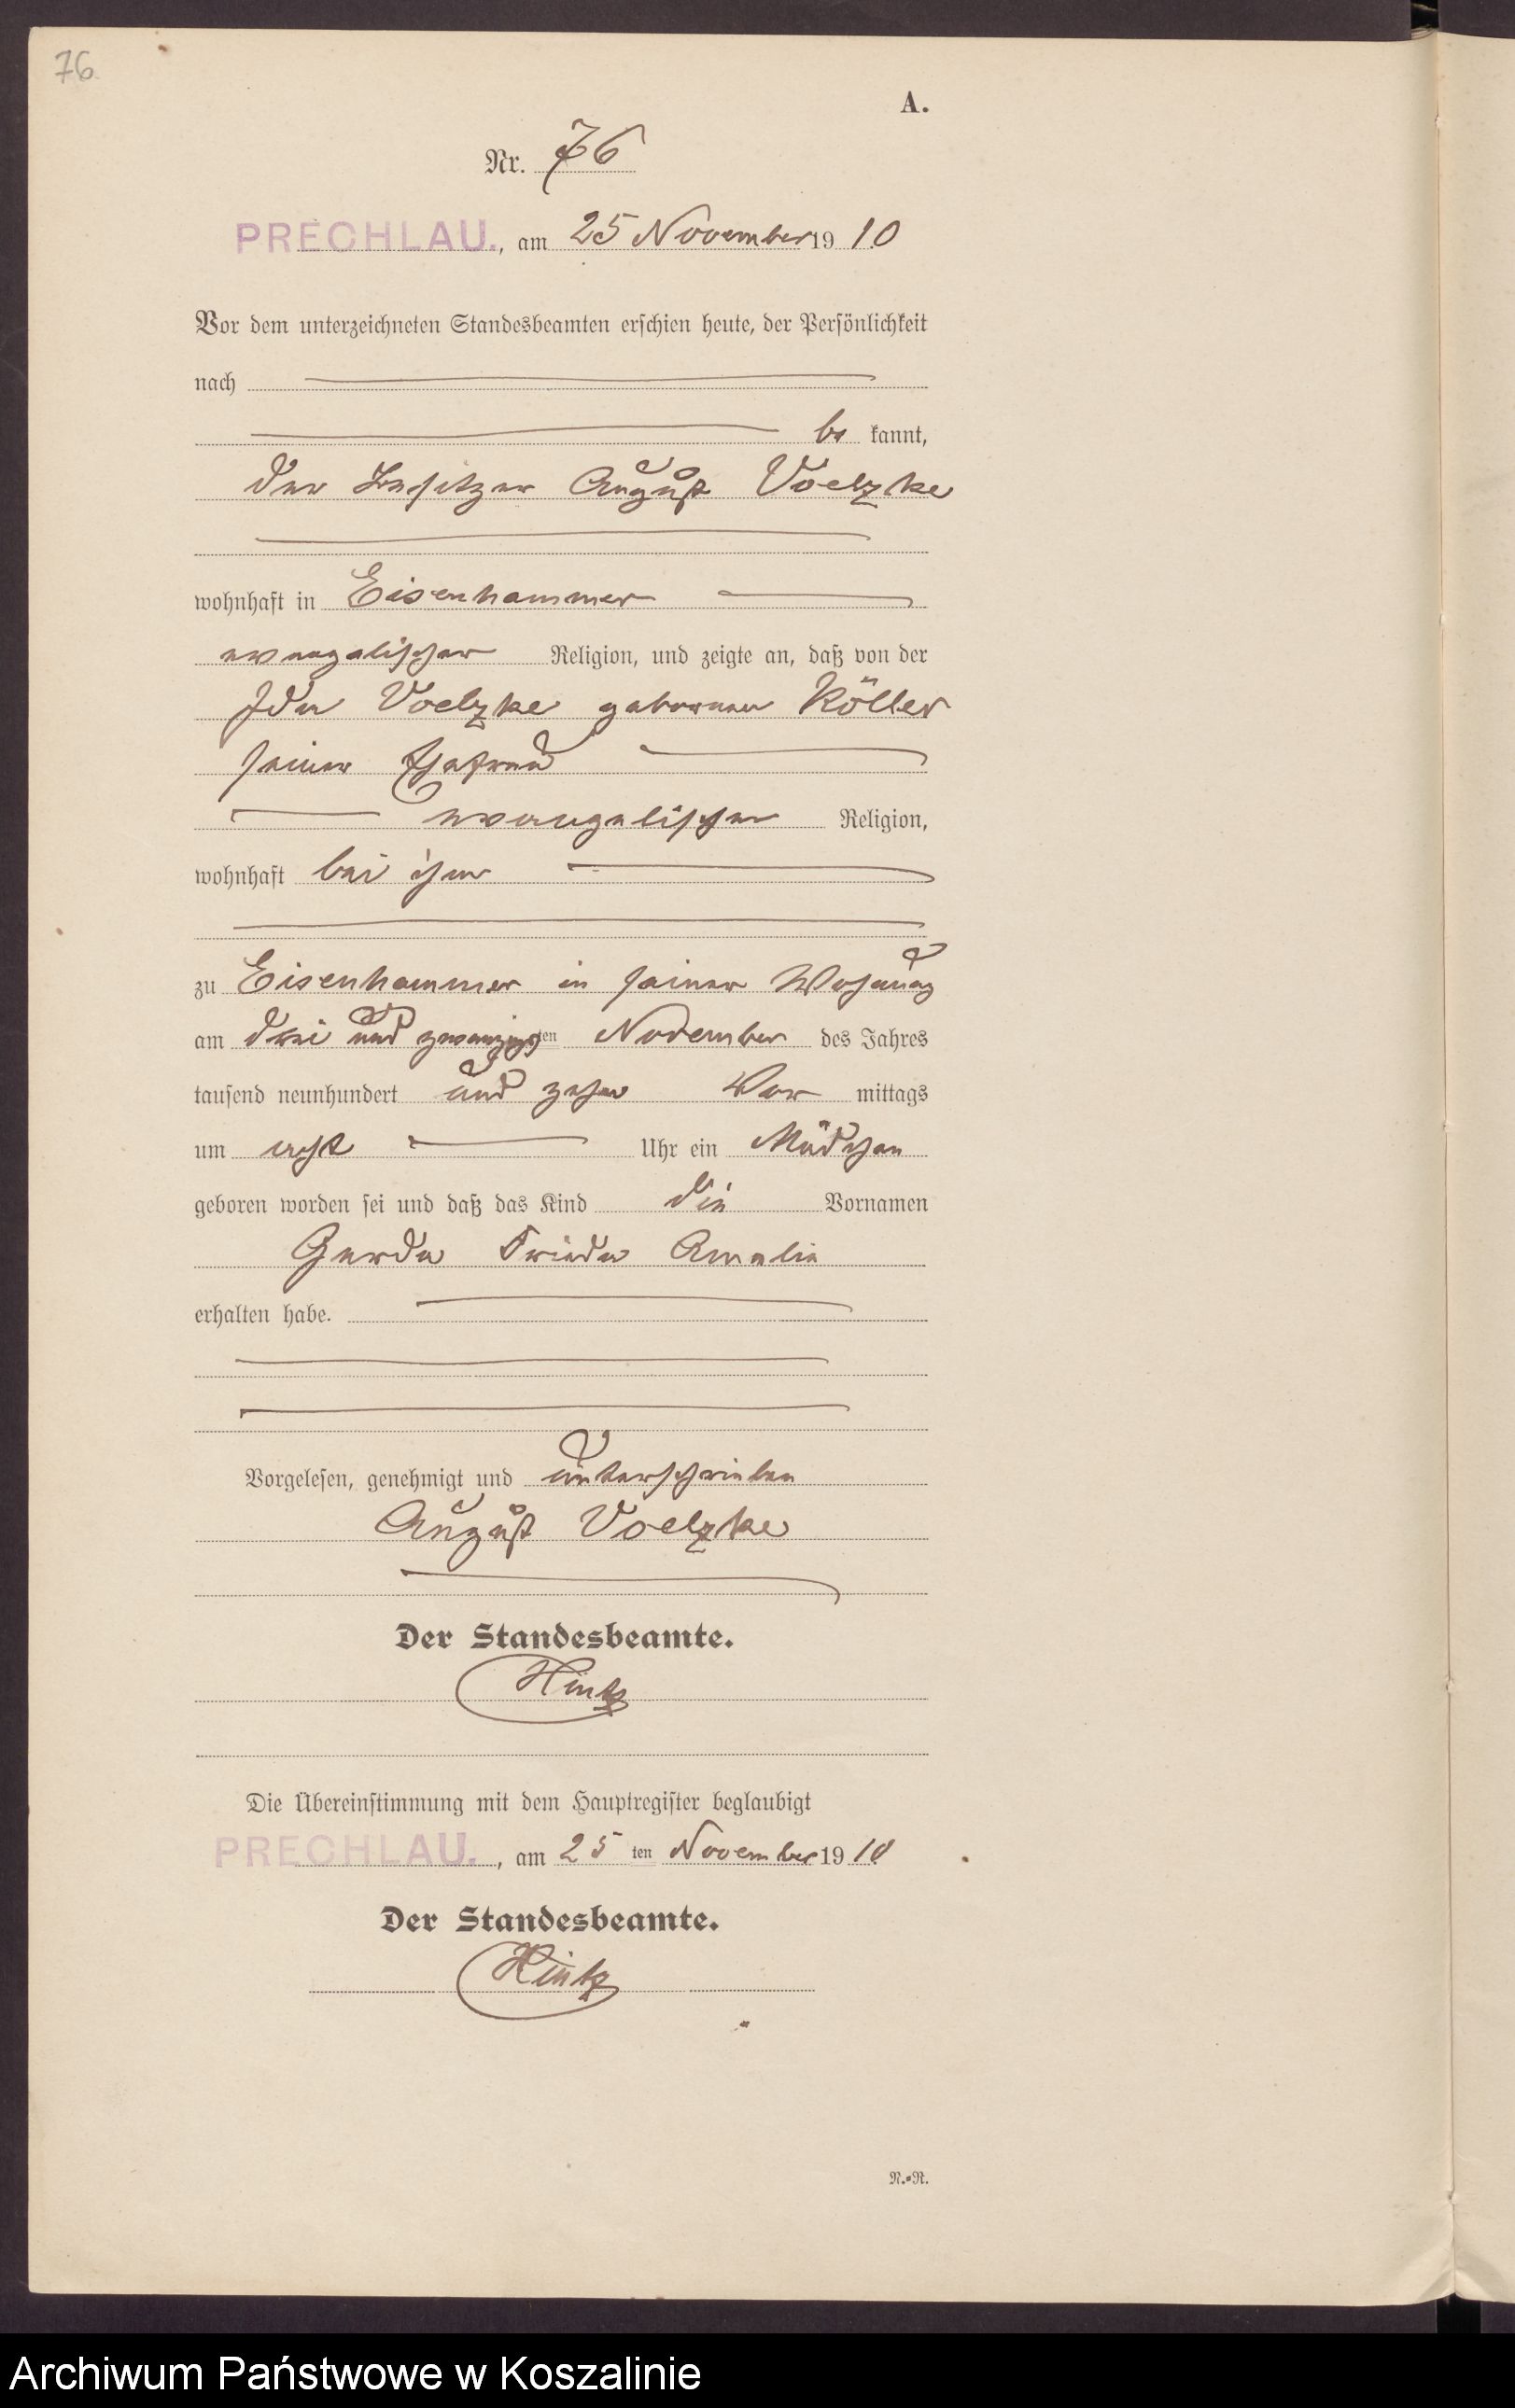 76
A.
Nr. 76
PRECHLAU., am 25 November 1910
Vor dem unterzeichneten Standesbeamten erschien heute, der Persönlichkeit
nach
be kannt,
der Besitzer August Voelzke
wohnhaft in Eisenhammer
evangelischer Religion, und zeigte an, daß von der
Ida Voelzke geborenen Köller
seiner Ehefrau
evangelischer Religion,
wohnhaft bei ihm
zu Eisenhammer in seiner Wohnung
am drei und zwanzigsten November des Jahres
tausend neunhundert und zehn Vor mittags
um acht Uhr ein Mädchen
geboren worden sei und daß das Kind die Vornamen
Gerda Frieda Amalie
erhalten habe.
Vorgelesen, genehmigt und unterschrieben
August Voelzke
Der Standesbeamte.
Hintz
Die Übereinstimmung mit dem Hauptregister beglaubigt
PRECHLAU., am 25 ten November 1910
Der Standesbeamte.
Hintz
N.=R.
Archiwum Państwowe w Koszalinie